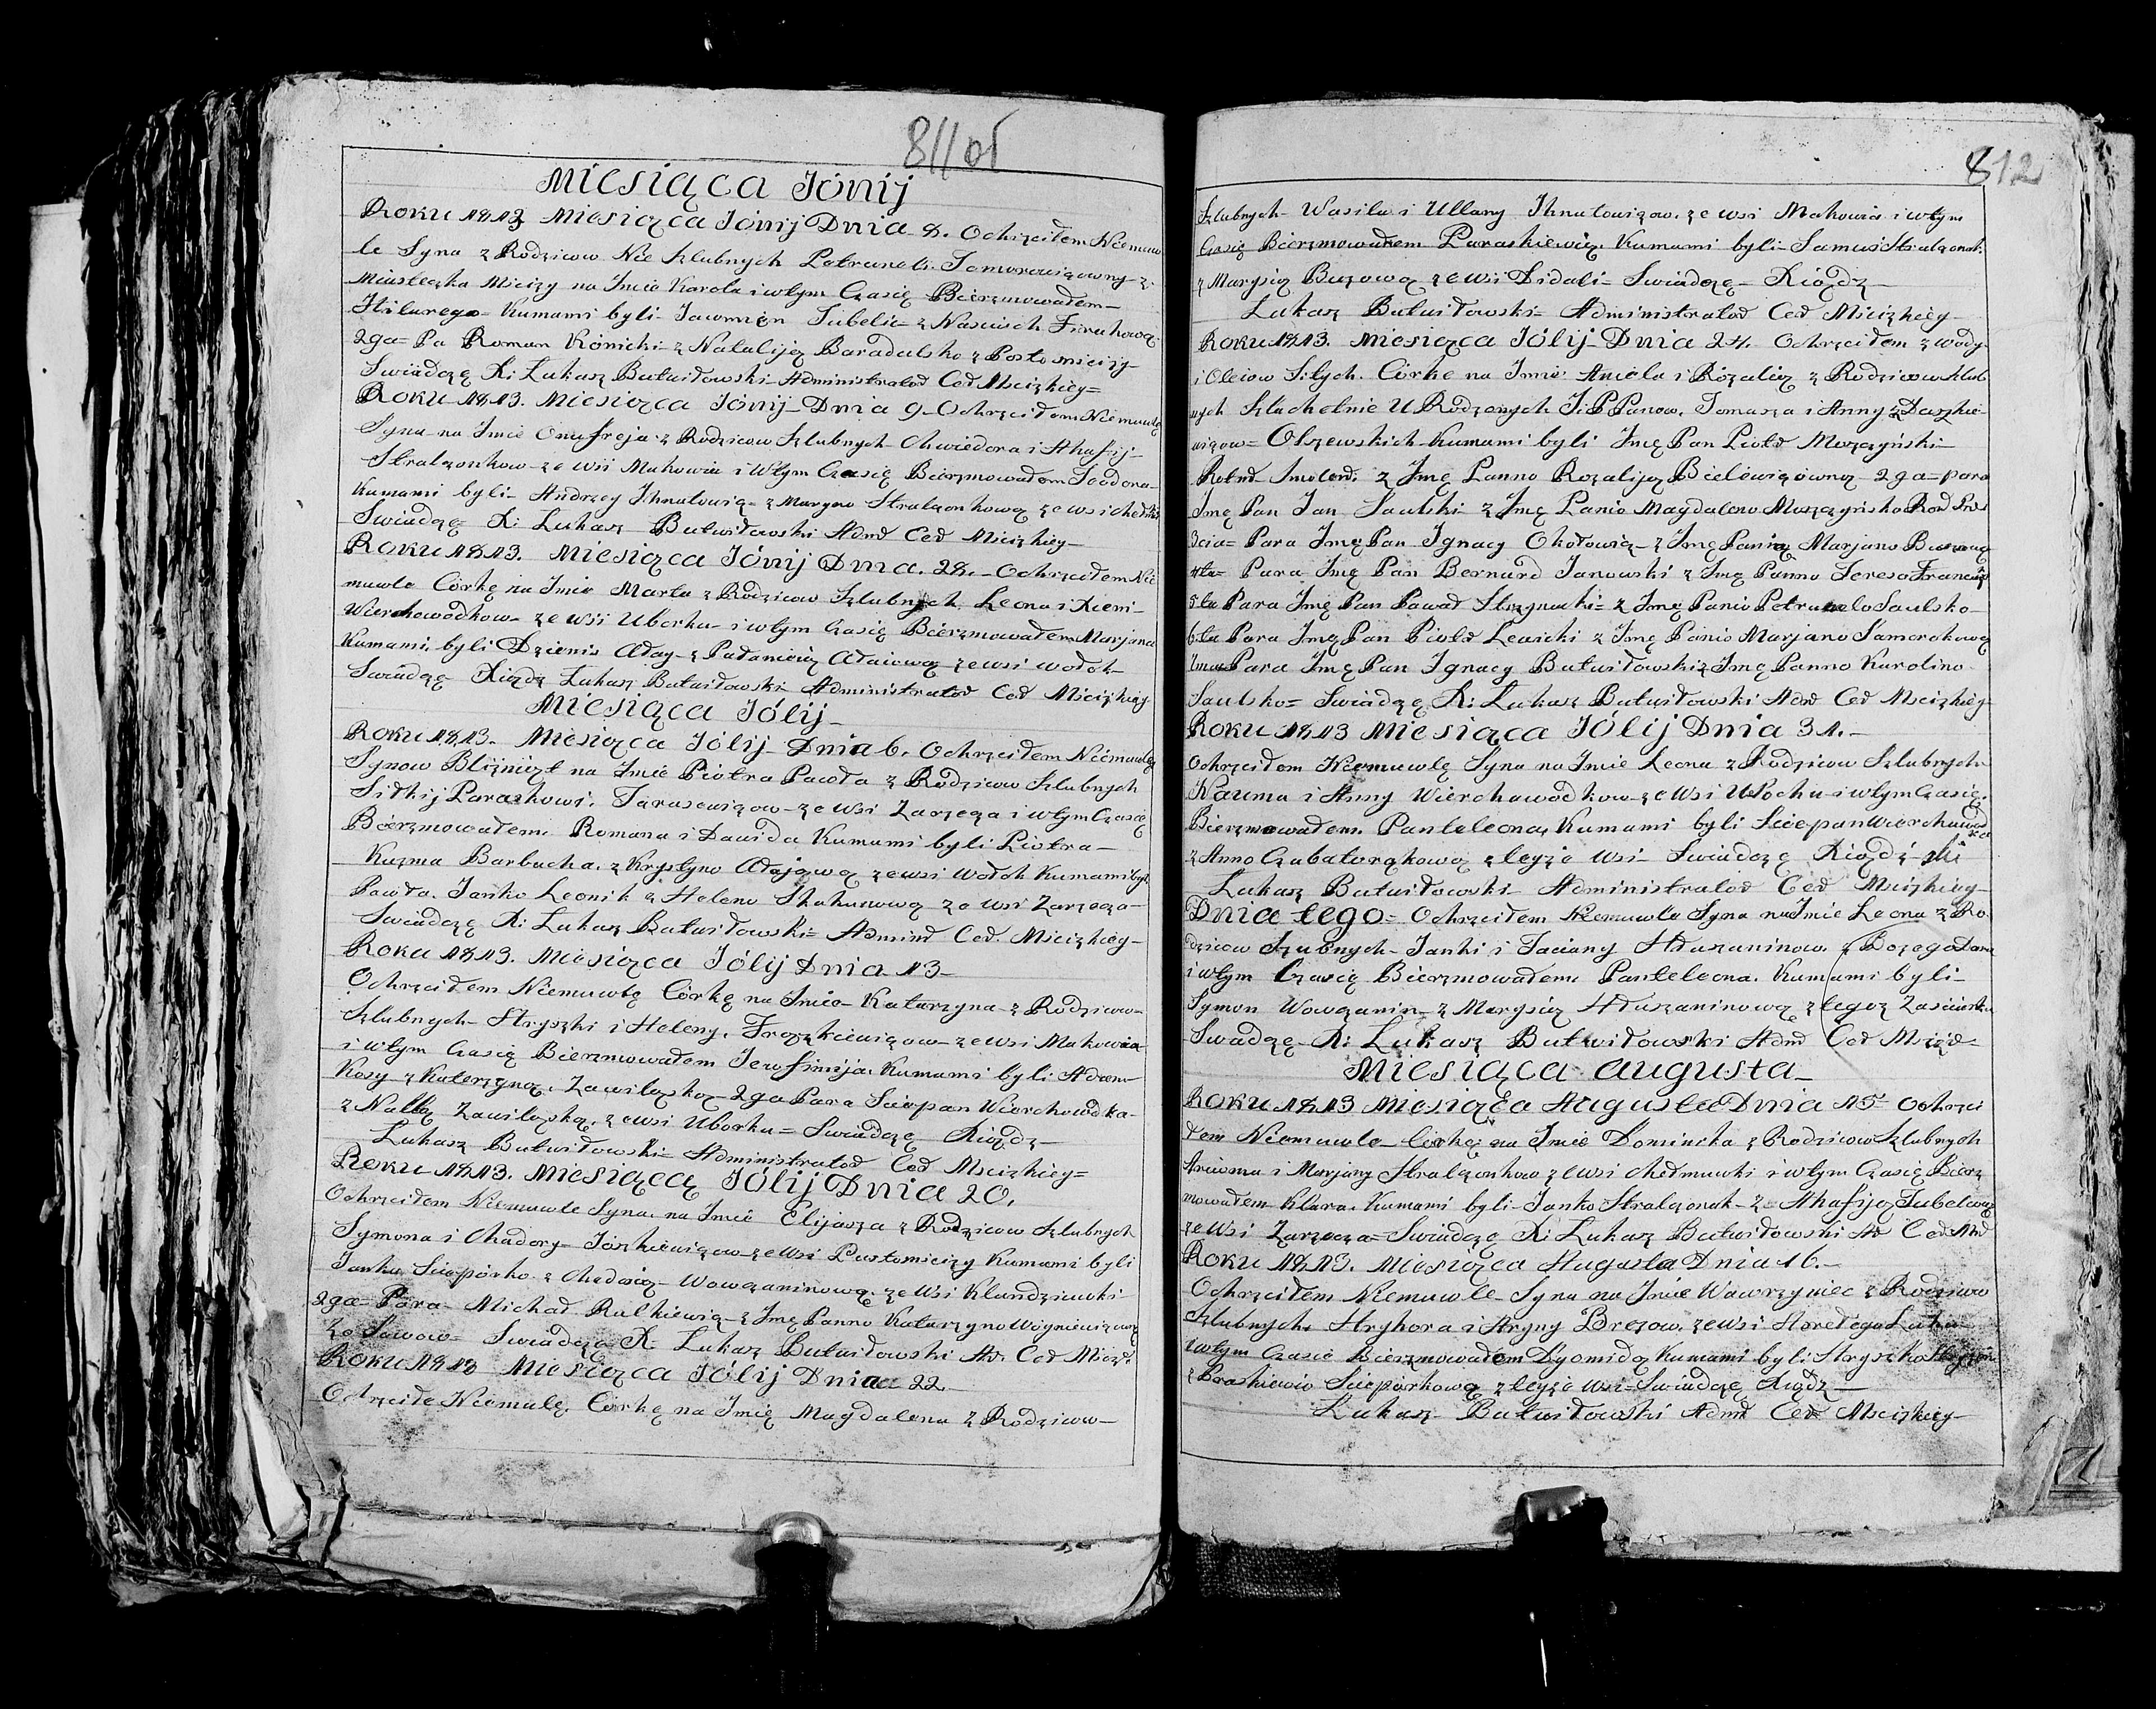 811 об
Miesiąca Jónij
Roku 1813 Miesiąca Jónij Dnia 8. Ochrzciłem Niemuw
le Syna z Rodzicow Nie Szlubnych Petruneli Tomorowiczowny z
Miasteczka Mscizy na Jmie Karola i wtym Czasię Bierzmowałem
Hilarego Kumami byli Jawmien Tubelic z Nascisch
2ga= Pa Roman Kónicki z Nataliją Baradulsko z Posto mscizy
Swiadczę X: Łukasz Butwiłowski Administrator Ced Mscizkiey=
Roku 1813. Miesiąca Jónij Dnia 9 Ochrzciłem Niemuwlę
Syna na Jmie Onufreja z Rodzicow Szlubnych Chwiedora i Ahafij
Stralczonkow ze wsi Makowia i Wtym Czasię Bierzmowałem Teodora
Kumami byli Andrzey Jhnatowicz z Maryno Stralczonkową ze wsi
Swiadczę= X: Łukasz Butwiłowski Admr Ced Mscizkiey
Roku 1813. Miesiąca Jónij Dnia. 28. Ochrzciłem Nie
muwle Córkę na Jmie Marta z Rodzicow Szlubnych Leona i Xieni
Wierchowodkow ze wsi Uborka i wtym Czasię Bierzmowałem Marjana
Kumami byli Dzienis Ałay z Pałanieią Ałaiową ze wsi Wołok
Swiadczę Xiądz Łukasz Butwiłowski Administrator Ced Mscizkiey
Miesiąca Jólij
Roku 1813. Miesiąca Jólij Dnia 6. Ochrzciłem Niemuwlęc
Synow Bliźniczt na Jmie Piotra Pawła z Rodzicow Szlubnych
Siłkij Paraskowi. Tarasewiczow ze wsi Zarzecza i wtym Czasię
Bierzmowałem Romana i Dawida Kumami byli Piotra
Kuzma Barbucha. z Krystyno Ałajową ze wsi Wołok Kumami byli
Pawła. Janko Leonik z Heleno Skakunową ze wsi Zarzecza
Swiadczę X: Łukasz Butwiłowski= Admini Ced. Mscizkiey
Roku 1813. Miesiąca Jólij Dnia 13
Ochrzciłem Niemuwlę Córkę na Jmie Katarzyna z Rodzicow
Szlubnych Hryszki i Heleny. Fraszkiewiczow ze wsi Makowia
i wtym Czasię Bierzmowałem Jerofimija. Kumami byli Adam
Kosy z Katerzyną. Zawilską 2ga Para Sciepan Wierchowodka
z Nallą Zawilską. ze wsi Uborka= Swiadczę Xiądz
Łukasz Butwiłowski= Administrator Ced Mscizkiey=
Roku 1813. Miesiąca Jólij Dnia 20.
Ochrzciłem Niemuwle Syna. na Jmie Elijasza z Rodzicow Szlubnych
Symona i Chadory Jóskiewiczow ze wsi Pustomscizy Kumami byli
Janka Scieporko z Chadosią Wowczaninową. ze wsi Klundziuki
2ga= Para Michał Rutkiewicz z Jmę Panno Katarzyno
Swiadczę X. Łukasz Butwiłowski Ad. Ced Mscizk
Roku 1813 Miesiąca Jólij Dnia 22
Ochrzciłe Niemulę. Córkę na Jmię Magdalena z Rodzicow
812
Szlubnych Wasila i Ullany Jhnatowiczow. ze wsi Makowia i wtym
Czasię Bierzmowałem Paraskiewię. Kumami byli Samuś Stralczonak
z Marysią Buzową ze wsi Didali Swiadczę Xiądz
Łukasz Butwiłowski Administrator Ced Mscizkiey
Roku 1813. Miesiąca Jólij Dnia 24. Ochrzciłem z wody
i Oleiow S.tych. Córke na Jmie Aniela i Rózalią z Rodzicow Szlub
nych Szlachetnie URodzonych J:PPanow. Tomasza i Anny z Daszkie
wiczow= Olszewskich Kumami byli Jmę Pan Piotr Moszczyński
z Jmę Panno Rozaliją Bielewiczowną 2ga=para
Jmę Pan Jan Saulski z Jmę Panio Magdaleno Moszczyńsko
3cia= Para Jmę Pan Jgnacy Okołowicz z Jmę Panią Marjano
4ta= Para Jmę Pan Bernard Janowski z Jmę Panno Tereso
5ta Para Jmę Pan Paweł z Jmę Panio Petrunelo Saulsko
6.ta Para Jmę Pan Piotr Lewicki z Jmę Panio Marjano Samorokową
7ma Para Jmę Pan Jgnacy Butwiłowski z Jmę Panno Karolino
Saulsko= Swiadczę X: Łukasz Butwiłowski Adm Ced Mscizkiey
Roku 1813 Miesiąca Jólij Dnia 31.
Ochrzciłem Niemuwlę Syna na Jmie Leona z Rodzicow Szlubnych
Nauma i Anny Wierchawodkow ze wsi i wtym Czasię
Bierzmowałem. Panteleona, Kumami byli Sciepan Wierchawod
z Anno Czabatorakową z teyże wsi Swiadczę Xiądz
Łukasz Butwiłowski Administrator Ced Mscizkiey
Dnia tego= Ochrzciłem Niemuwle Syna na Jmie Leona z Ro
dzicow Szubnych Janki i Taciany Hłuszaninow. z Bozegodaru
i wtym Czasię Bierzmowałem Panteleona. Kumami byli
Symon Wowczanin z Marysią Hłuszaninową z tegoz Zascianku
Swadczę X: Łukasz Butwiłowski Admr Ced Msciż
Miesiąca augusta
Roku 1813 Miesiąca Augusta Dnia 15 Ochrzci
łem Niemuwle Córkę na Jmie Dominika z Rodzicow Szlubnych
i Marjany Stralczonkow ze wsi Chełmuwki i wtym Czasię Bierz
mowałem Klara. Kumami byli Janko Stralczonak z Ahafiją Tubelową
ze wsi Zarzecza= Swiadczę X: Łukasz Butwiłowski Ad Ced
Roku 1813. Miesiąca Augusta Dnia 16.
Ochrzciłem Niemuwle Syna na Jmie Wawrzyniec z Rodzicow
Szlubnych Hryhora i Aryny Brezow. ze wsi
i wtym Czasie Bierzmowałem Dyomida Kumami byli Hryszko
z Praskiewio Scieporkową z teyże wsi= Swiadczę Xiądz
Łukasz Butwiłowski Admr Ced Mscizkiey